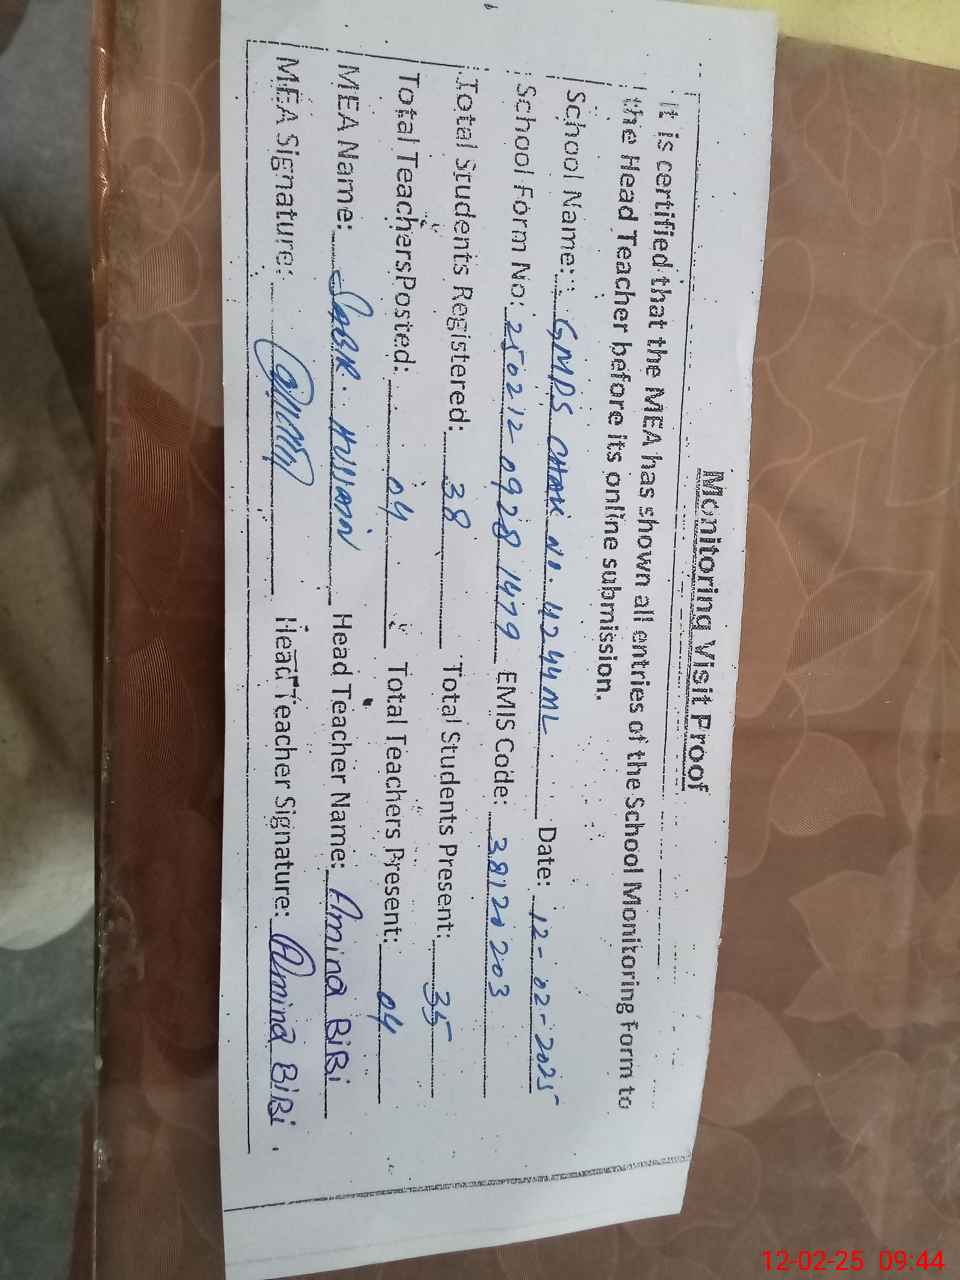 Monitoring Visit Proof
It is certified that the MEA has shown all entries of the School Monitoring Form to
the Head Teacher before its online submission.
School Name: GMPS CHAK No. 42 44 ML Date: 12-02-2025
School Form No: 250212 0928 1479 EMIS Code: 38120203
Total Students Registered: 38 Total Students Present: 35
Total Teachers Posted: 04 Total Teachers Present: 04
MEA Name: SABIR. HUSSAIN Head Teacher Name: Amina BiBi
MEA Signature: Head Teacher Signature: Amina BiBi.
12-02-25 09:44